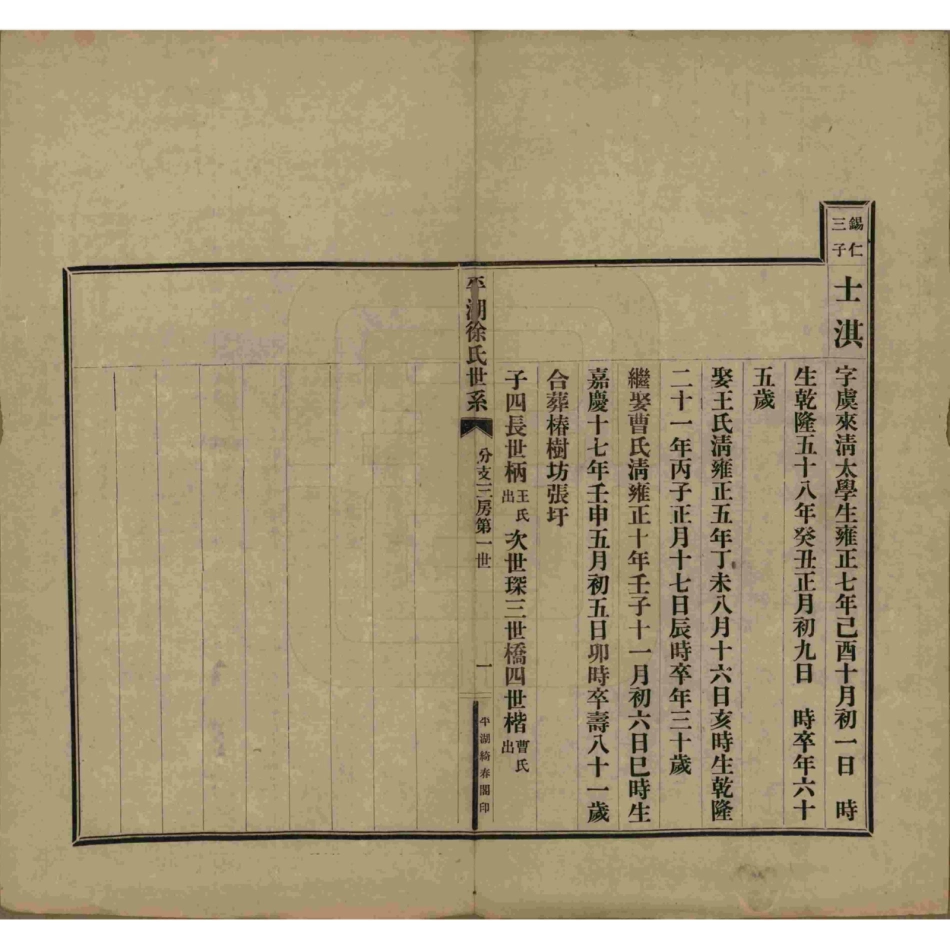 錫仁
三子
士淇
字虞來淸太學生雍正七年己酉十月初一日　時
生乾隆五十八年癸丑正月初九日　時卒年六十
五歲
娶王氏淸雍正五年丁未八月十六日亥時生乾隆
二十一年丙子正月十七日辰時卒年三十歲
繼娶曹氏淸雍正十年壬子十一月初六日巳時生
嘉慶十七年壬申五月初五日卯時卒壽八十一歲
合葬椿樹坊張圩
子四長世柄王氏出次世琛三世橋四世楷曹氏出
平湖徐氏世系
分支三房第一世
一
平湖綺春閣印